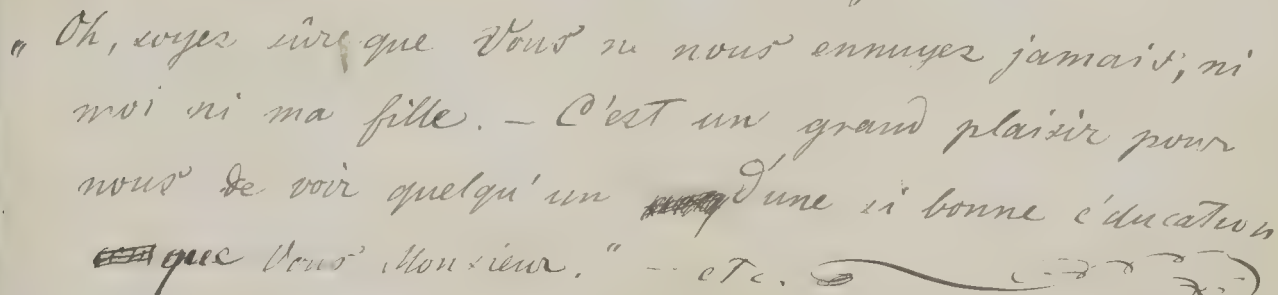 „ Oh, soyez sûre que Vous ne nous ennuyez jamais, ni
moi ni ma fille. – C'est un grand plaisir pour
nous de voir quelqu'un d'une si bonne éducation
que Vous Monsieur." – etc.